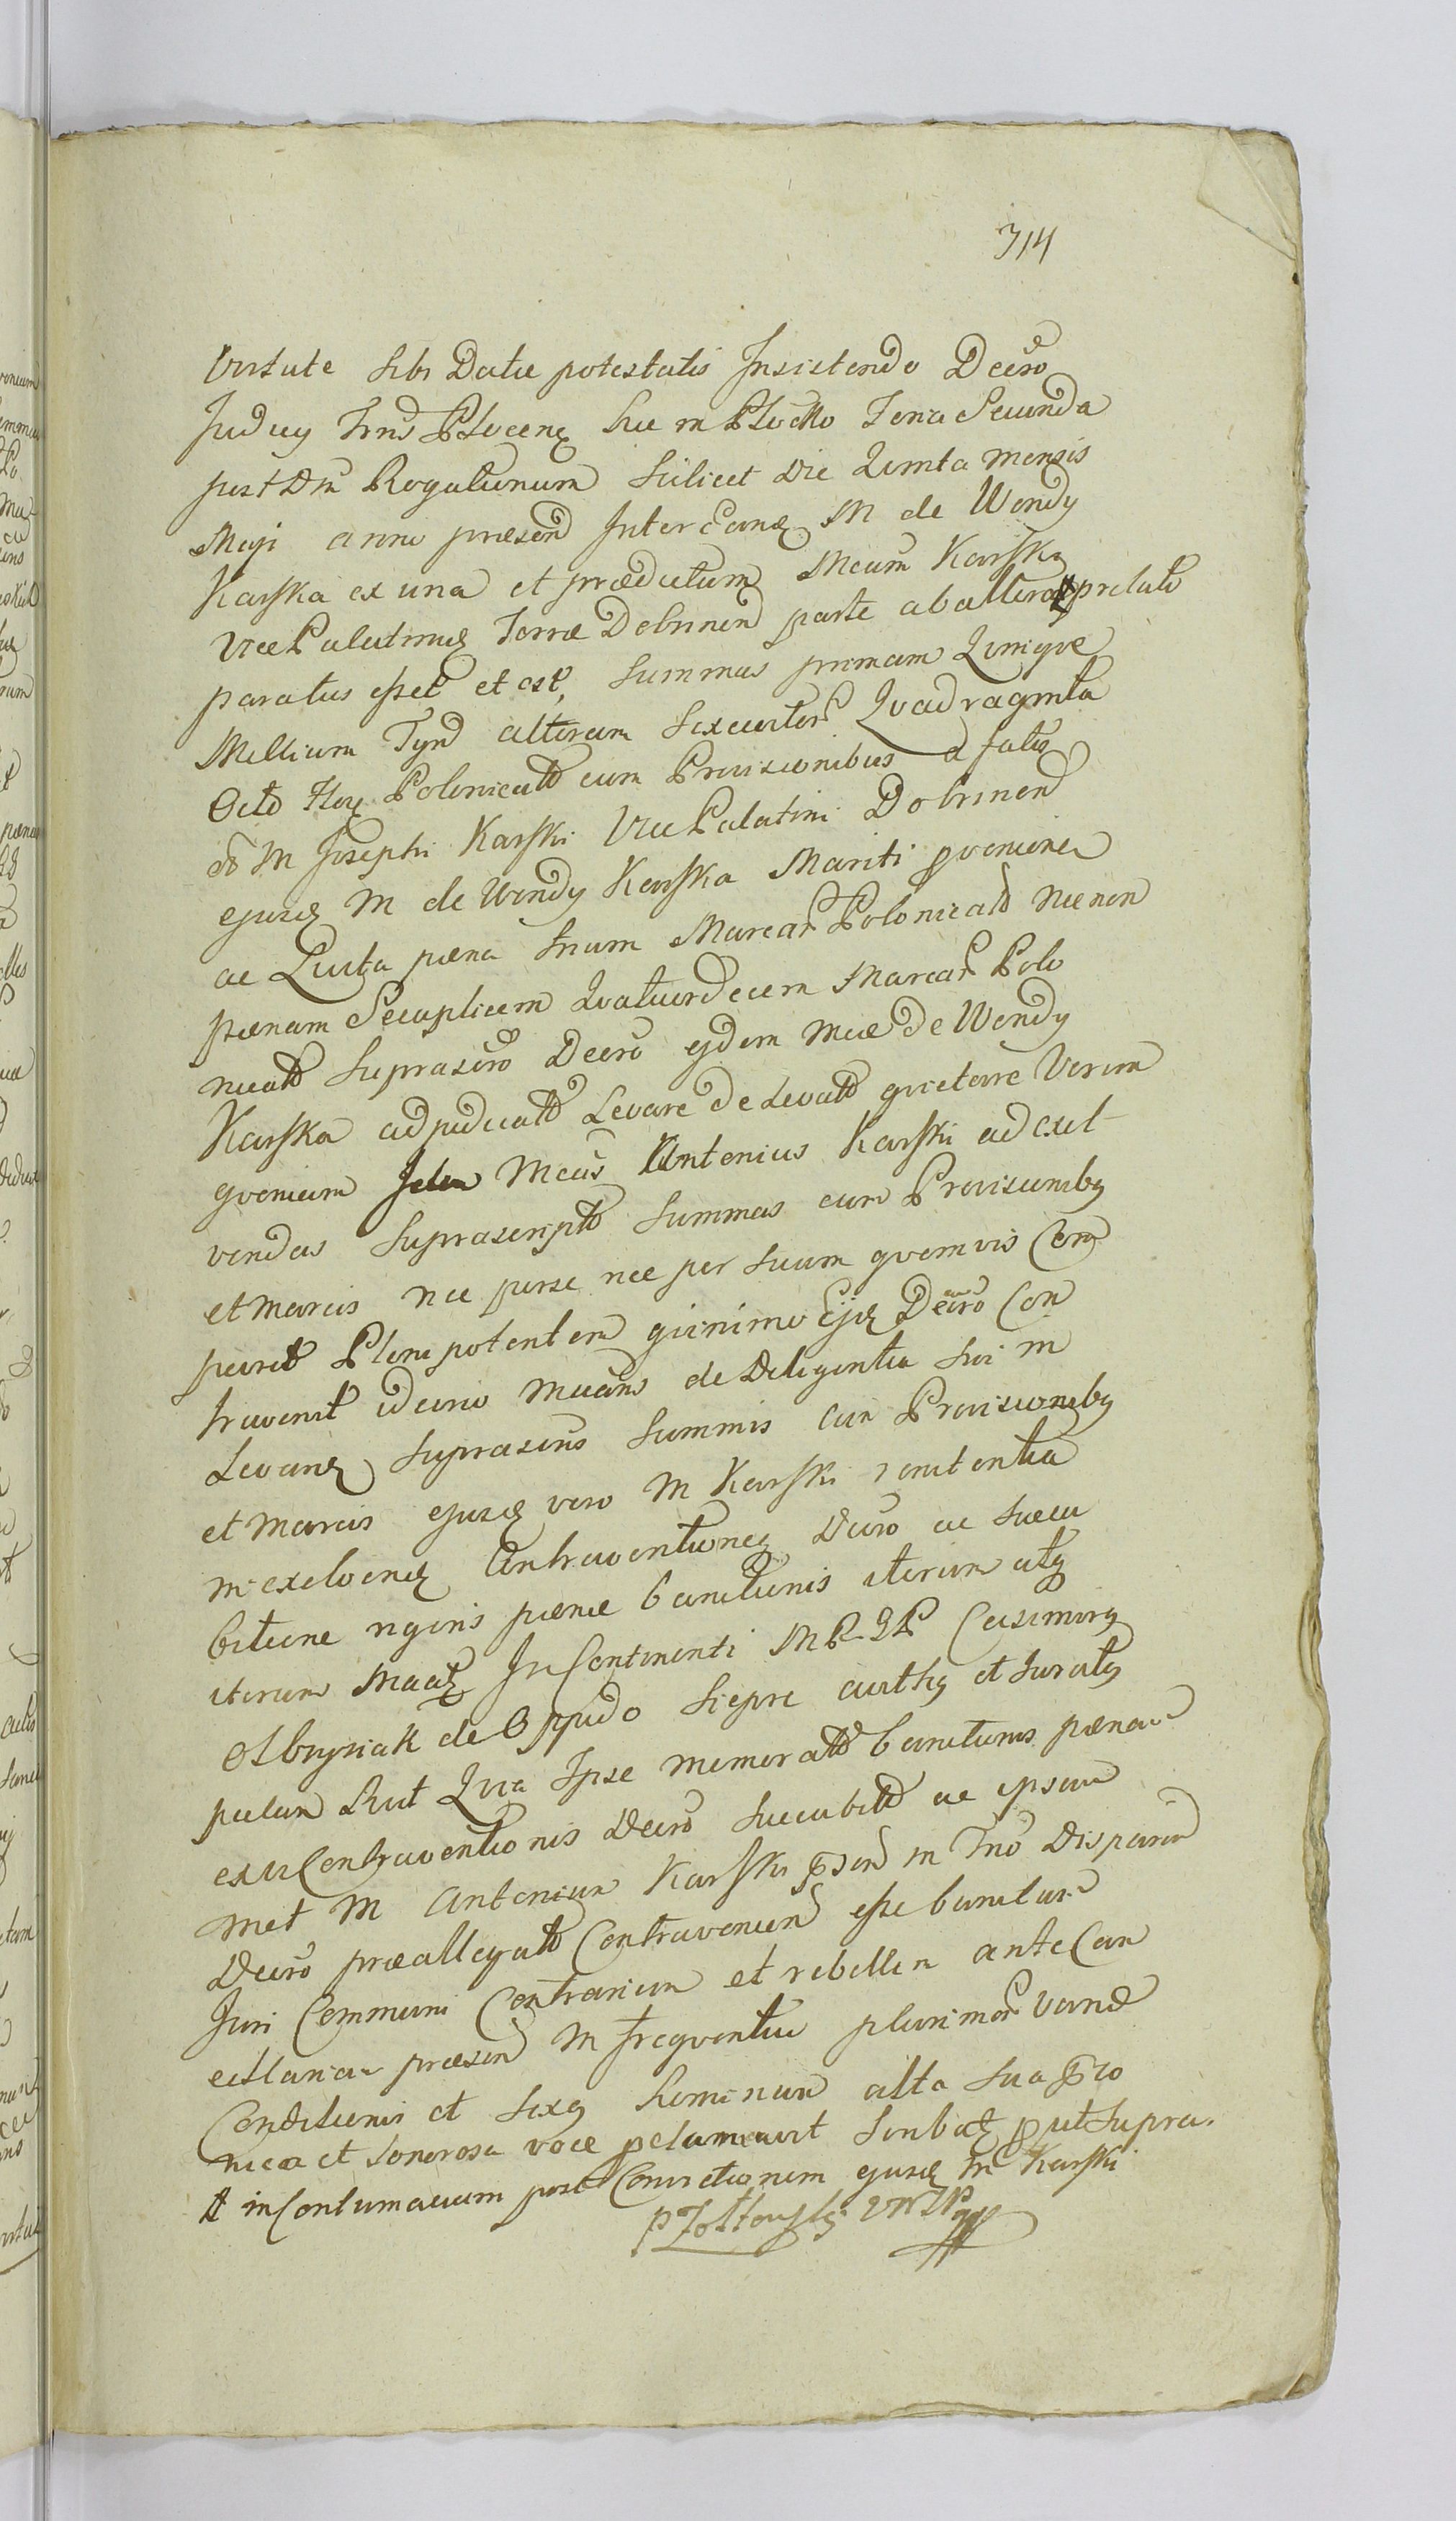 714
Virtute sibi Datae potestatis Insistendo Decro
Judicÿ Trris Plocens hic in Plocko Feria Secunda
post Dm Rogationum Scilicet Die Quinta mensis
Maji anno praesen Inter Eand M de Wendy
Karska ex una et praedictum Mcum Karski
Vice Palatinus Terrae Dobrinen parte ab altera prolato
paratus esset et est, Summas primam Quinque
Millium Tynf alteram Sexcentor Quadraginta
Octo Flor Polonicalo cum Provisionibus a fatis
do M Josephi Karski Vice Palatini Dobrinen
ejusd M de Wendy Karska Mariti provenien
ac Luita paena trium Marcar Polonicalo nec non
paenam Secuplicem Quatuordecem Marcar Polo
nicalo Suprascro Decro ejdem Mcae De Wendy
Karska adjudicato Levare de Levato quietare Verum
quoniam Idem Mcus Antonius Karski ad exol
vendas Suprascripto Summas cum Provisionibq
et marcis nec per se nec per suum quemvis Com
paruit Plenipotentem quinimo Ejd Decro Con
travenit ideirco Mcans de Diligentia sui in
Levand suprascris Summis cum Provisionibq
et Marcis ejusd vero M Karski renitentia
in exolvend Contraventioneq Decro ac succu
bitione rigoris paenae banitionis iterum atq
iterum Maatq In Continenti MPGP Casimirq
Olbrysiak de Oppido Siepre authq et Juratq
palam Quia Ipse memorato banitionis paenae
ex vi Contraventionis Decro Succubito ac ipsum
met M Antonium Karski in Tno Disparen
Decro praeallegato Contravenien esse banitum
Juri Communi Contrarium et rebellem ante Can
cellariam praesen in frequentia plurimor variae
Conditionis et Sexq hominum alta sua Pro
nica et Sonorosa voce pclamavit prout Supra.
in Contumaciam post Convictionem ejusd M Karski